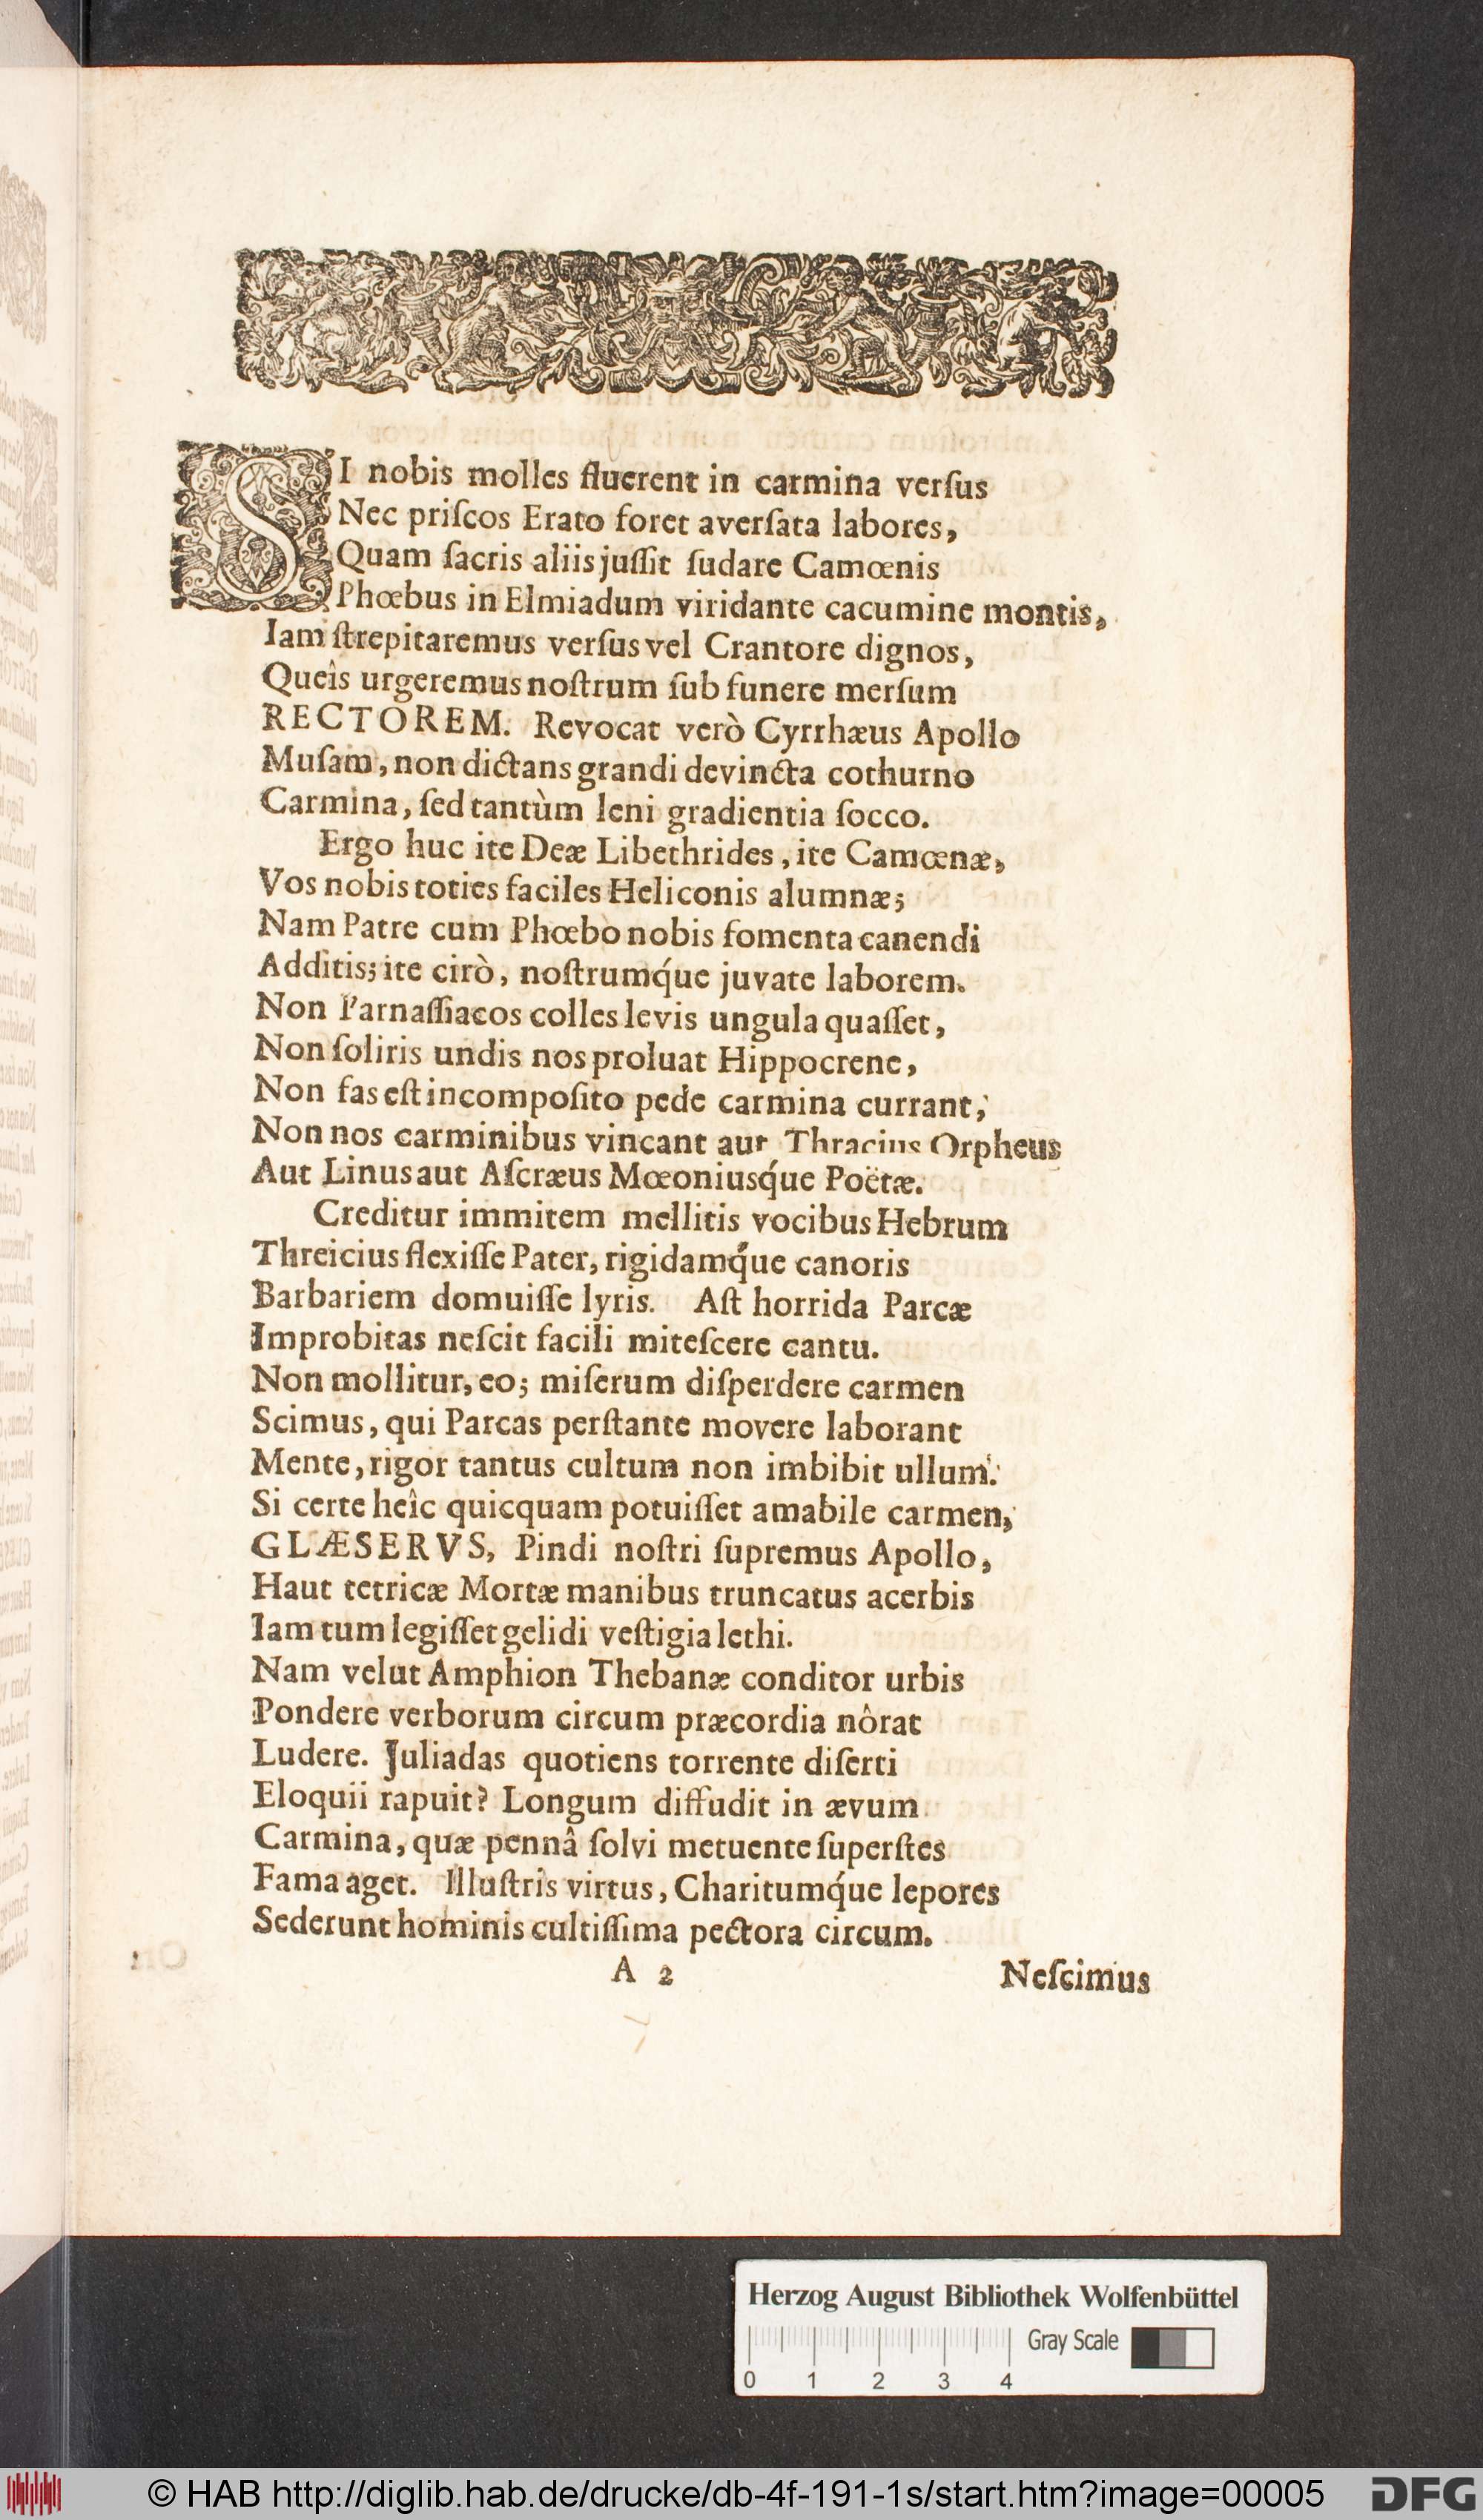 SI nobis molles fluerent in carmina verſus
Nec priſcos Erato foret averſata labores,
Quam ſacris aliis juſſit ſudare Camœnis
Phœbus in Elmiadum viridante cacumine montis,
Iam ſtrepitaremus verſus vel Crantore dignos,
Queîs urgeremus noſtrum ſub funere merſum
RECTOREM. Revocat verò Cyrrhæus Apollo
Muſam, non dictans grandi devincta cothurno
Carmina, ſed tantùm leni gradientia ſocco.
Ergo huc ite Deæ Libethrides, ite Camœnæ,
Vos nobis toties faciles Heliconis alumnæ;
Nam Patre cum Phœbo nobis fomenta canendi
Additis; ite citò, noſtrumq́ue juvate laborem.
Non Parnaſſiacos colles levis ungula quaſſet,
Non ſoliris undis nos proluat Hippocrene,
Non fas eſt incompoſito pede carmina currant,
Non nos carminibus vincant aut Thracius Orpheus
Aut Linus aut Aſcræus Mœoniusq́ue Poëtæ.
Creditur immitem mellitis vocibus Hebrum
Threicius flexiſſe Pater, rigidamq́ue canoris
Barbariem domuiſſe lyris. Aſt horrida Parcæ
Improbitas neſcit facili miteſcere cantu.
Non mollitur, eo; miſerum diſperdere carmen
Scimus, qui Parcas perſtante movere laborant
Mente, rigor tantus cultum non imbibit ullum.
Si certe heîc quicquam potuiſſet amabile carmen,
GLÆSERVS, Pindi noſtri ſupremus Apollo,
Haut tetricæ Mortæ manibus truncatus acerbis
Iam tum legiſſet gelidi veſtigia lethi.
Nam velut Amphion Thebanæ conditor urbis
Pondere verborum circum præcordia nôrat
Ludere. Juliadas quotiens torrente diſerti
Eloquii rapuit? Longum diffudit in ævum
Carmina, quæ pennâ ſolvi metuente ſuperſtes
Fama aget. Illuſtris virtus, Charitumq́ue lepores
Sederunt hominis cultiſſima pectora circum.
A 2 Neſcimus
Herzog August Bibliothek Wolfenbüttel
Gray Scale
0 1 2 3 4
© HAB http://diglib.hab.de/drucke/db-4f-191-1s/start.htm?image=00005 DFG